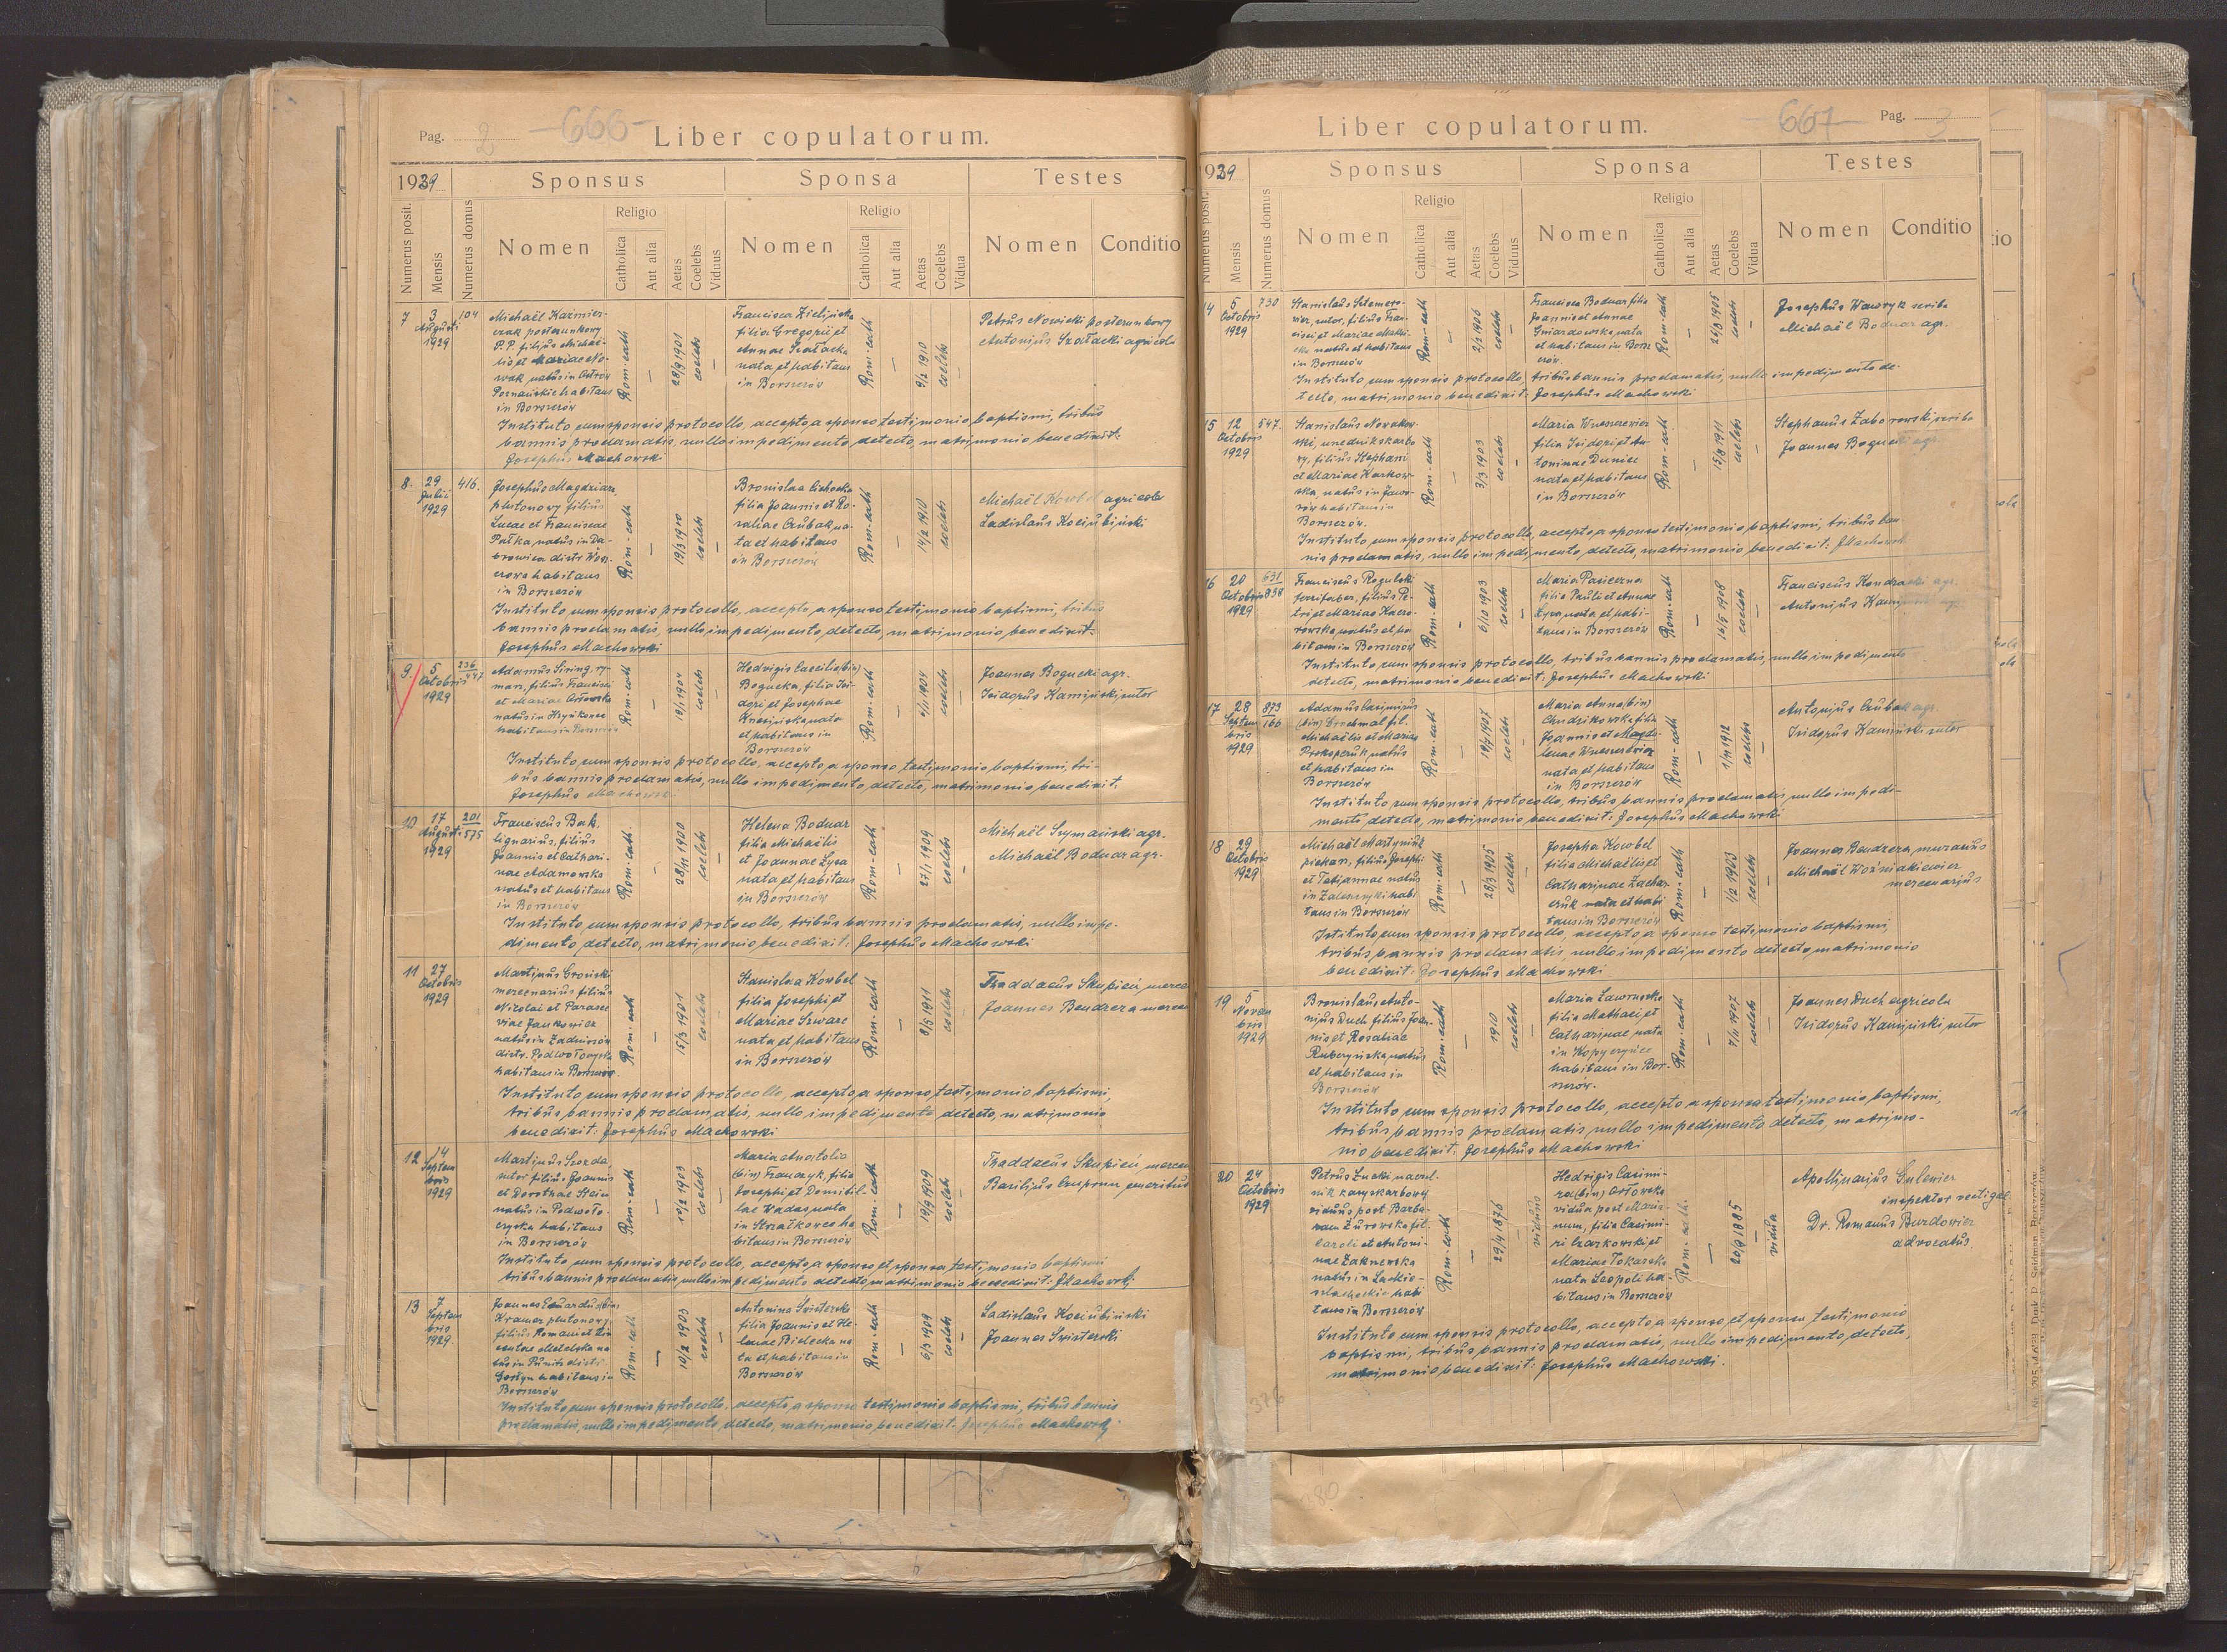 Pag. 2 -666- Liber copulatorum.
1929 Sponsus Sponsa Testes
Numerus posit. Mensis Numerus domus Nomen Religio Catholica Aut alia Aetas Coelebs Viduus Nomen Religio Catholica Aut alia Aetas Coelebs Vidua Nomen Conditio
7 3 Augusti 1929 104
Michaël Kaźmier-
czak posterunkowy
P.P. filius Michaë-
lis et Mariae No-
wak natus in Ostrów
Poznańskie habitans
in Borszczów
Rom.cath — 28/9 1901 coelebs —
Francisca Zielińska
filia Gregorii et
Annae Szałacka
nata et habitans
in Borszczów
Rom-cath — 9/2 1910 coelebs —
Petrus Nowicki posterunkowy
Antonius Szałacki agricola
Instituto cum sponsis protocollo, accepto a sponso testimonio baptismi, tribus
bannis proclamatis, nullo impedimento detecto, matrimonio benedixit:
Josephus Machowski
8. 29 Julii 1929 416.
Josephus Magdziarz
plutonowy filius
Lucae et Franciscae
Pałka, natus in Dą-
browica distr. Wosz-
czowa habitans
in Borszczów
Rom-cath — 19/3 1900 coelebs —
Bronislaa Cichocka
filia Joannis et Ro-
saliae Czubak na-
ta et habitans
in Borszczów
Rom-cath — 14/2 1910 coelebs
Michaël Kowbel agricola
Ladislaus Kociubiński
Instituto cum sponsis protocollo, accepto a sponso testimonio baptismi, tribus
bannis proclamatis, nullo impedimento detecto, matrimonio benedixit:
Josephus Machowski
9. 5 Octobris 1929 236/447
Adamus Siring ry-
marz, filius Francisci
et Mariae Orłowska
natus in Krzykonce
habitans in Borszczów
Rom-cath — 19/1 1904 coelebs —
Hedvigis Caecilia (bin)
Bogucka, filia Isi-
dori et Josephae
Kniezińska nata
et habitans in
Borszczów
Rom.cath — 4/11 1904 coelebs —
Joannes Bogucki agr.
Isidorus Kamiński, sutor
Instituto cum sponsis protocollo, accepto a sponso testimonio baptismi, tri-
bus bannis proclamatis, nullo impedimento, detecto, matrimonio benedixit:
Josephus Machowski
10 17 Augusti 1929 201/575
Franciscus Bak,
lignarius, filius
Joannis et Cathari-
nae Adamowska
natus et habitans
in Borszczów
Rom-cath. — 28/11 1900 coelebs —
Helena Bodnar
filia Michaëlis
et Joannae Łysa
nata et habitans
in Borszczów
Rom-cath — 27/1 1909 coelebs —
Michaël Szymański agr.
Michaël Bodnar agr.
Instituto cum sponsis protocollo, tribus bannis proclamatis, nullo impe-
dimento detecto, matrimonio benedixit: Josephus Machowski
11 27 Octobris 1929
Martinus Groński
mercenarius filius
Nicolai et Parasce
viae Jankowicz
natus in Zadnirów
distr. Podwołoczyska
habitans in Borszczów.
Rom-cath — 15/3 1901 coelebs
Stanislaa Kowbel
filia Josephi et
Mariae Szwarc
nata et habitans
in Borszczów
Rom-cath — 8/5 1911 coelebs —
Thaddaeus Skupień, merce
Joannes Bendzera mercen
Instituto cum sponsis protocollo, accepto a sponso testimonio baptismi,
tribus bannis proclamatis, nullo impedimento detecto, matrimonio
benedixit: Josephus Machowski
12 14 Septembris 1929
Martinus Szozda
sutor filius Joannis
et Dorotheae Stein
natus in Podwoło-
czyska habitans
in Borszczów
Rom-cath — 10/2 1903 coelebs —
Maria Anatolia
(bin) Franczyk, filia
Josephi et Domitil-
lae Wadas nata
in Strzałkowce ha-
bitans in Borszczów
Rom-cath — 19/9 1909 coelebs —
Thaddaeus Skupień, mercen
Basilius Czuprun emeritus
Instituto cum sponsis protocollo, accepto a sponso et sponsa testimonio baptismi
tribus bannis proclamatis nullo impedimento detecto matrimonio benedixit: JMachowski
13 7 Septembris 1929
Joannes Eduardus (bin)
Kramer plutonowy
filius Romani et
natus in Punitz distr.
Gostyn habitans in
Borszczów
Rom.cath — 10/2 1903 coelebs —
Antonina Świsterska
filia Joannis et He-
lenae Bielecka na
ta et habitans in
Borszczów
Rom-cath — 6/3 1909 coelebs —
Ladislaus Kociubiński
Joannes Świsterski
Instituto cum sponsis protocollo, accepto a sponso testimonio baptismi, tribus bannis
proclamatis, nullo impedimento, detecto, matrimonio benedixit: Josephus Machowski
Liber copulatorum. -667- Pag. 3
1929 Sponsus Sponsa Testes
Numerus posit. Mensis Numerus domus Nomen Religio Catholica Aut alia Aetas Coelebs Viduus Nomen Religio Catholica Aut alia Aetas Coelebs Vidua Nomen Conditio
14 5 Octobris 1929 730
Stanislaus Sztemero-
wicz, sutor, filius Fran-
cisci et Mariae
natus et habitans
in Borszczów
Rom-cath — 2/2 1906 coelebs —
Francisca Bodnar filia
Joannis et Annae
Gniazdowska, nata
et habitans in Borsz
czów.
Rom-cath — 25/3 1905 coelebs —
Josephus Wawryk scriba
Michaël Bodnar agr.
Instituto cum sponsis protocollo, tribus bannis proclamatis, nullo impedimento de-
tecto, matrimonio benedixit: Josephus Machowski
15 12 Octobris 1929 547.
Stanislaus Nowakow-
ski, urzędnik skarbo
wy, filius Stephani
et Mariae Karkow-
ska, natus in Jawo-
rów habitans in
Borszczów.
Rom-cath — 3/3 1903 coelebs —
Maria Wnessewicz
filia Isidori et An-
toninae Duniec
nata et habitans
in Borszczów
Rom-cath — 15/8 1911 coelebs —
Stephanus Zaborowski, scriba
Joannes Bogucki agr.
Instituto cum sponsis protocollo, accepto a sponso testimonio baptismi, tribus ban
nis proclamatis, nullo impedimento, detecto, matrimonio benedixit: JMachowski
16 20 Octobris 1929 631/838
Franciscus Rogulski
ferrifaber, filius Pe-
tri et Mariae Kacza-
rowska, natus et ha
bitans in Borszczów
Rom.cath — 6/10 1903 coelebs —
Maria Pasieczna
filia Pauli et Annae
Łysa nata, et habi-
tans in Borszczów
Rom-cath — 16/5 1908 coelebs —
Franciscus Kondracki agr.
Antonius Kamiński agr.
Instituto cum sponsis protocollo, tribus bannis proclamatis, nullo impedimento
detecto, matrimonio benedixit: Josephus Machowski
17 28 Septembris 1929 873/166
Adamus Casimirus
(bin) Grochmal fil.
Michaëlis et Mariae
Prokopczuk, natus
et habitans in
Borszczów
Rom-cath — 19/7 1907 coelebs —
Maria Anna (bin)
Chudzikowska filia
Joannis et Magda-
lenae Wnessewicz
nata et habitans
in Borszczów
Rom-cath — 1/11 1912 coelebs —
Antonius Czubak agr.
Isidorus Kamiński sutor
Instituto cum sponsis protocollo, tribus bannis proclamatis nullo impedi-
mento detecto, matrimonio benedixit: Josephus Machowski
18 29 Octobris 1929
Michaël Martyniuk
piekarz, filius Josephi
et Tatiannae natus
in Zaleszczyki habi
tans in Borszczów
Rom-cath — 28/3 1905 coelebs —
Josepha Kowbel
filia Michaëlis et
Catharinae Zachar-
czuk nata et habi
tans in Borszczów
Rom-cath — 1/2 1903 coelebs —
Joannes Bendzera, murarius
Michaël Woźniakiewicz
mercenarius
Istituto cum sponsis protocollo, accepto a sponso testimonio baptismi,
tribus bannis proclamatis nullo impedimento detecto matrimonio
benedixit: Josephus Machowski
19 5 Novembris 1929
Bronislaus Anto-
nius Duch filius Joan-
nis et Rosaliae
Rubczyńska, natus
et habitans in
Borszczów
Rom-cath — 1910 coelebs —
Maria Ławruska
filia Mathaei et
Catharinae nata
in Kopyczyńce
habitans in Bor-
szczów.
Rom-cath — 7/11 1907 coelebs —
Joannes Duch agricola
Isidorus Kamiński, sutor
Instituto cum sponsis protocollo, accepto a sponsa testimonio baptismi,
tribus bannis proclamatis nullo impedimento detecto, matrimo-
nio benedixit: Josephus Machowski
20 24 Octobris 1929
Petrus Łucki naczel.
nik kasy skarbowej
viduus post Barba-
ram Żurowska fil.
Caroli et Antoni-
nae Zaknewska
natus in Laskio-
szlacheckie habi
tans in Borszczów
Rom-cath — 29/4 1876 viduus
Hedvigis Casimi-
ra (bin) Orłowska
vidua post Maria-
num, filia Casimi-
ri Czarkowski et
Mariae Tokarska
nata Leopoli ha-
bitans in Borszczów
Rom-cath. — 20/9 1885 — vidua
Apollinarius Gulewicz
inspektor vectigal.
Dr. Romanus Burdowicz
advocatus
Instituto cum sponsis protocollo, accepto a sponso et sponsa testimonio
baptismi, tribus bannis proclamatis, nullo impedimento, detecto,
matrimonio benedixit: Josephus Machowski.
376
380